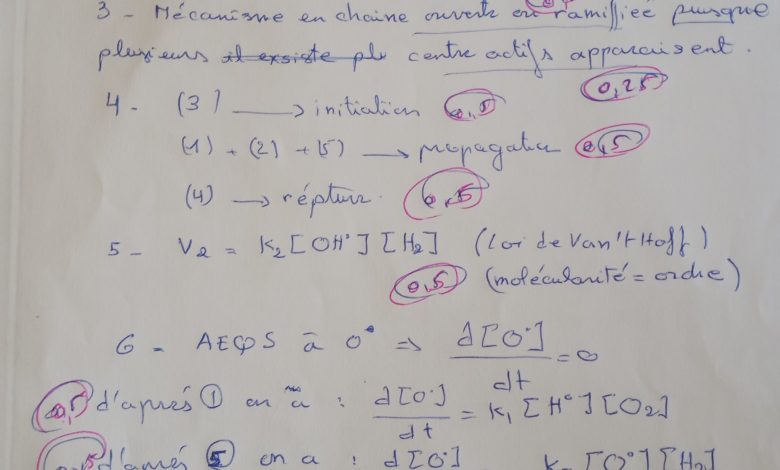 3 - Mécanisme en chaine ouverte ou ramifiée puisque
plusieurs il existe pls centre actifs apparaissent.
0,25
4 - (3) → initiation 0,5
(1) + (2) + (5) → propagation 0,5
(4) → répture. 0,5
5 - V2 = K2 [OH°] [H2] (Loi de Van't Hoff)
0,5 (molécularité = ordre)
6 - AEQS à O° ⇒ d[O°]/dt = 0
0,5 d'après ① on a : d[O°]/dt = K1 [H°] [O2]
0,5 d'après ⑤ on a : d[O°] [O°] [H2]